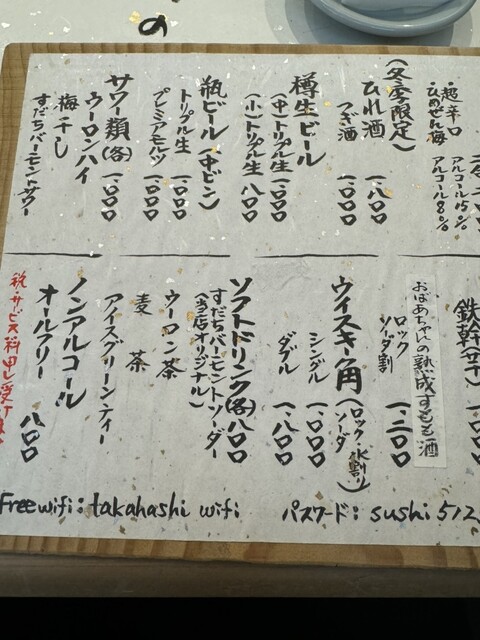 の
・超辛口
ひめぜん梅
アルコール15%
アルコール8%
(冬季限定)
ひれ酒 一、八〇〇
つぎ酒 一、〇〇〇
樽生ビール
(中)トリプル生 一、〇〇〇
(小)トリプル生 八〇〇
瓶ビール(中ビン)
トリプル生 一、〇〇〇
プレミアモルツ 一、〇〇〇
サワー類(各) 一、〇〇〇
ウーロンハイ
梅干し
すだちバーモントサワー
鉄幹(芋) 一、〇〇〇
おばあちゃんの熟成すもも酒
ロック
ソーダ割 一、二〇〇
ウイスキー角(ロック 水割り ソーダ)
シングル 一、〇〇〇
ダブル 一、八〇〇
ソフトドリンク(各)八〇〇
すだちバーモントソーダー
(当店オリジナル)
ウーロン茶
麦茶
アイスグリーンティー
ノンアルコール
オールフリー 八〇〇
税・サービス料申し受け
Free wifi: takahashi wifi パスワード: sushi 512